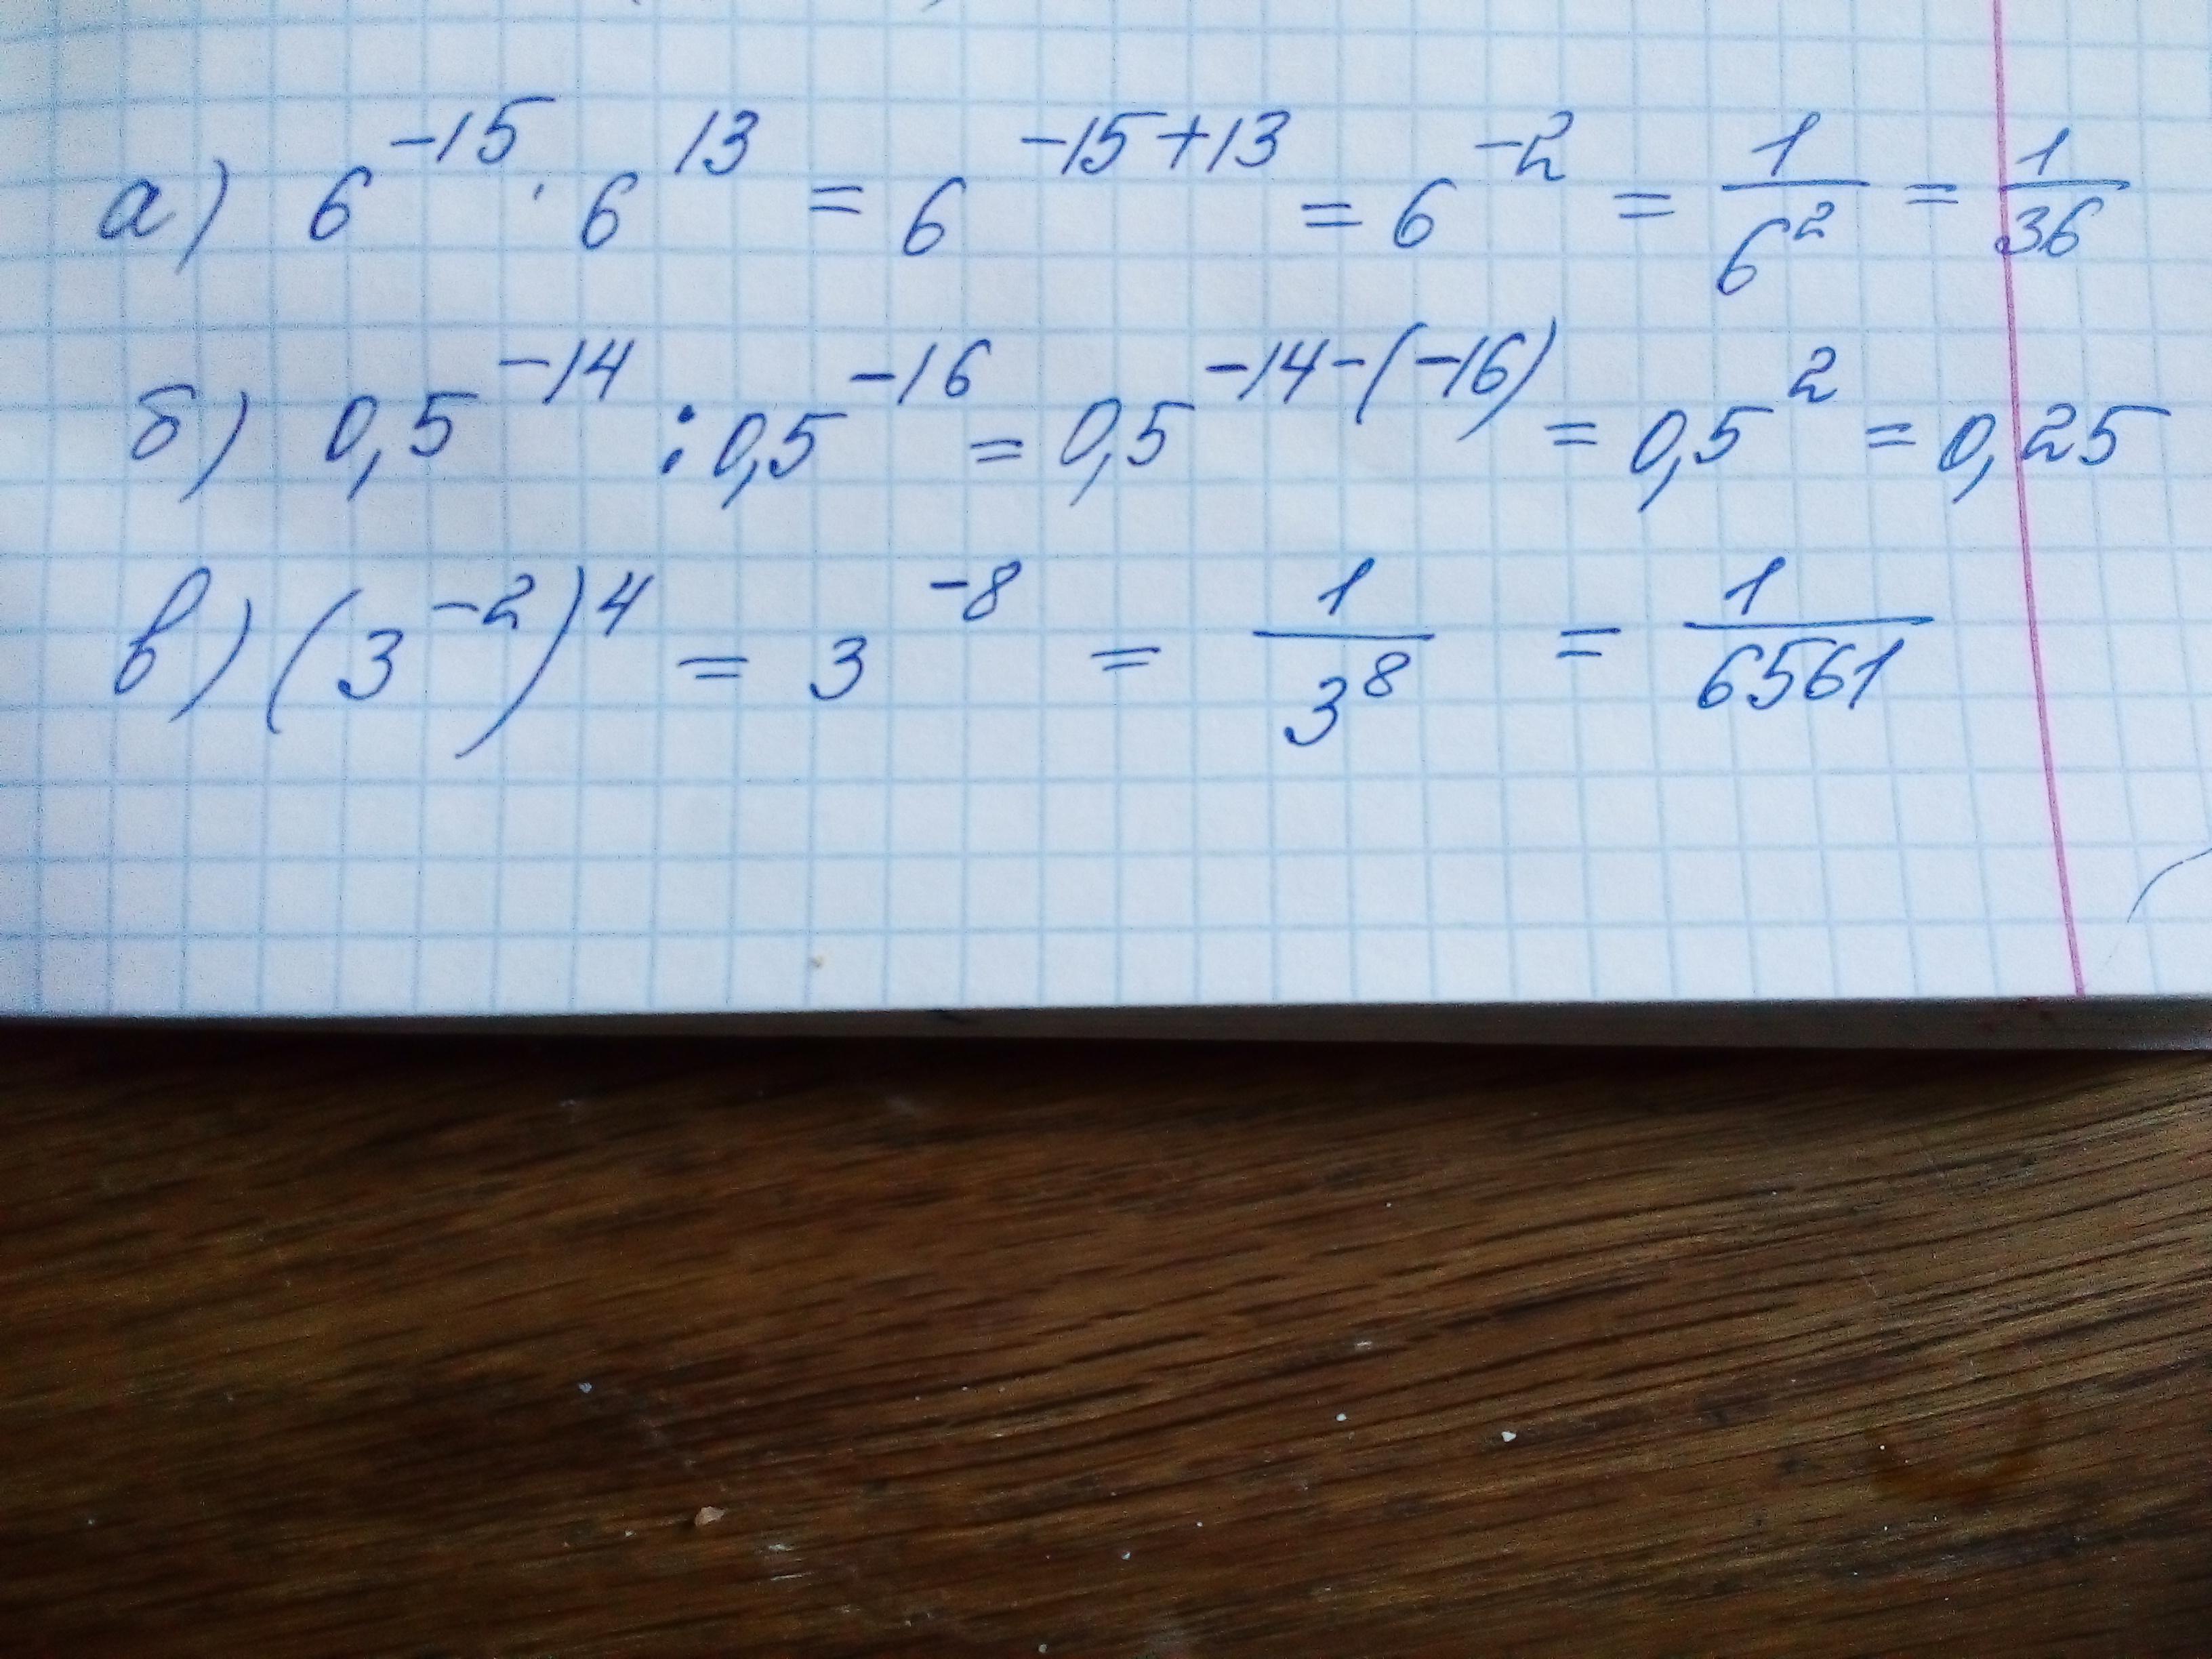 а) 6⁻¹⁵ · 6¹³ = 6⁻¹⁵⁺¹³ = 6⁻² = 1/6² = 1/36
б) 0,5⁻¹⁴ : 0,5⁻¹⁶ = 0,5⁻¹⁴⁻⁽⁻¹⁶⁾ = 0,5² = 0,25
в) (3⁻²)⁴ = 3⁻⁸ = 1/3⁸ = 1/6561